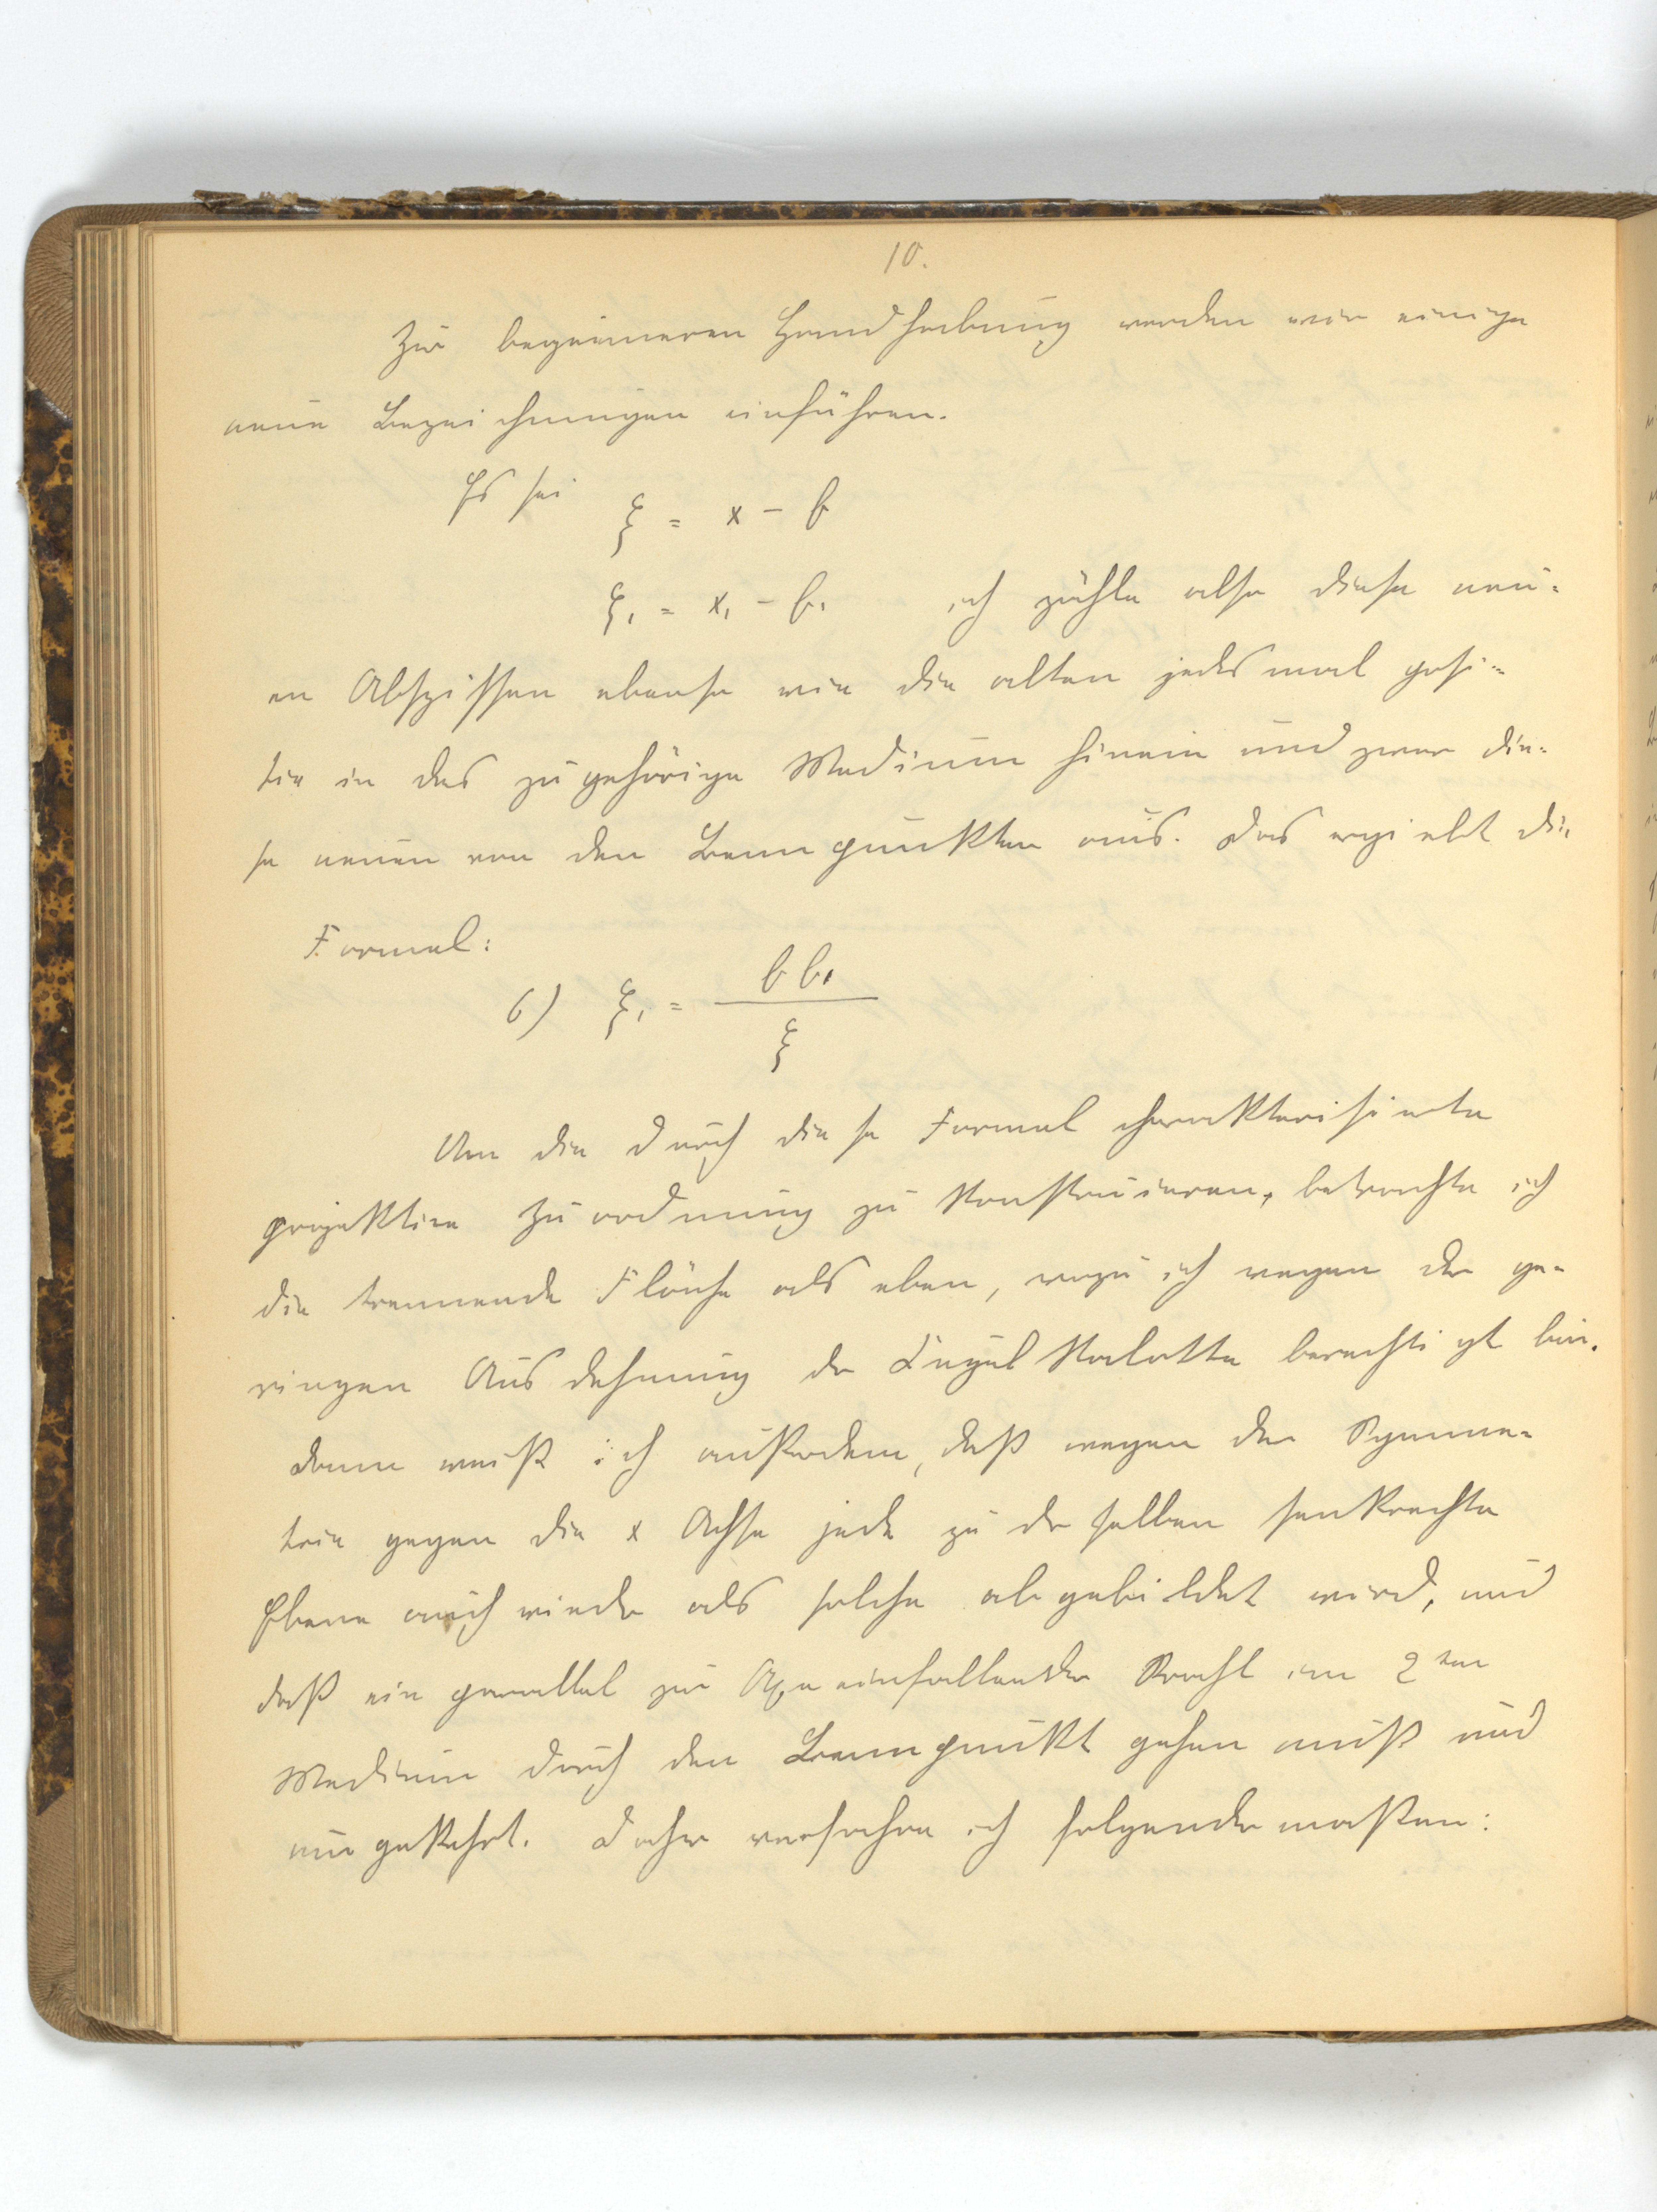 10.
Zur bequemeren Handhabung werden wir einige
neue Bezeichnungen einführen.
Es sei ξ = x − b
ξ₁ = x₁ − b₁ ich zähle also diese neu-
en Abszissen ebenso wie die alten jedesmal posi-
tiv in das zugehörige Medium hinein und zwar die-
se neuen von den Brennpunkten aus. Das ergiebt die
Formel:
6) ξ₁ = b b₁ / ξ
Um die durch diese Formel charakterisierte
projektive Zuordnung zu konstruieren, betrachte ich
die trennende Fläche als eben, wozu ich wegen der ge-
ringen Ausdehnung der Kugelkalotte berechtigt bin.
Dann weiß ich außerdem, daß wegen der Symme-
trie gegen die x Achse jede zu derselben senkrechte
Ebene auch wieder als solche abgebildet wird, und
daß ein parallel zur Axe einfallender Strahl im 2ten
Medium durch den Brennpunkt gehen muß und
umgekehrt. Daher verfahre ich folgendermaßen: